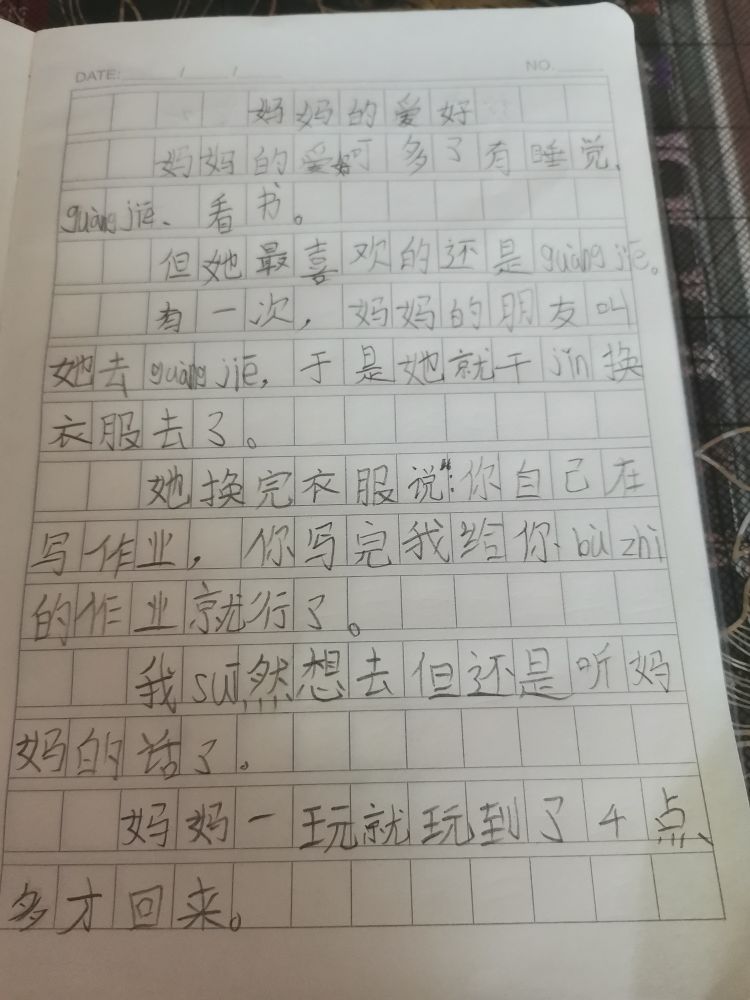 DATE: / /
NO.
妈妈的爱好
妈妈的爱好可多了有睡觉、
guàng jiē、看书。
但她最喜欢的还是guàng jiē。
有一次，妈妈的朋友叫
她去guàng jiē，于是她就干jǐn换
衣服去了。
她换完衣服说“：你自己在
写作业，你写完我给你bù zhì
的作业就行了。
我suī然想去但还是听妈
妈的话了。
妈妈一玩就玩到了4点
多才回来。